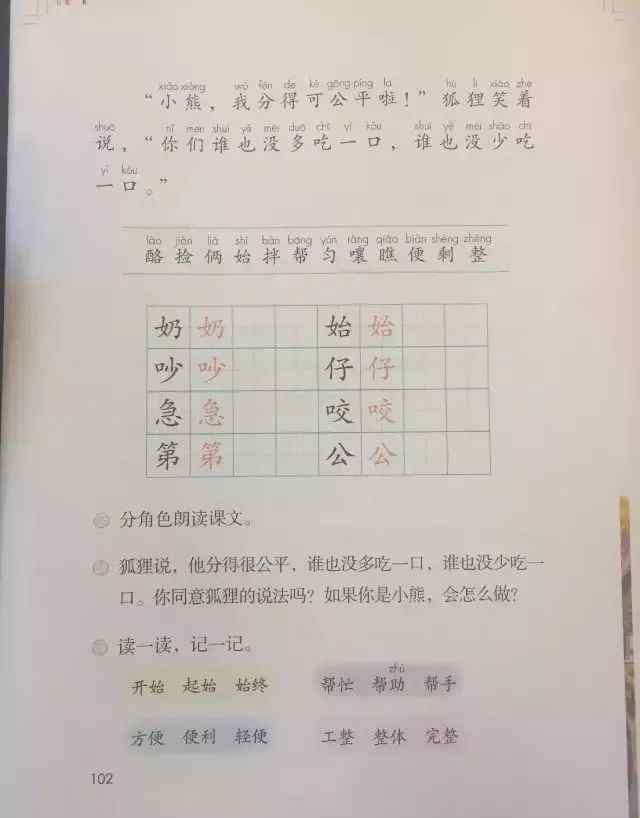 xiǎo xióng wǒ fēn de kě gōng píng la hú li xiào zhe
“小熊，我分得可公平啦！”狐狸笑着
shuō nǐ men shuí yě méi duō chī yì kǒu shuí yě méi shǎo chī
说，“你们谁也没多吃一口，谁也没少吃
yì kǒu
一口。”
lào jiǎn liǎ shǐ bàn bāng yún rǎng qiáo biàn shèng zhěng
酪 捡 俩 始 拌 帮 匀 嚷 瞧 便 剩 整
奶 奶 始 始
吵 吵 仔 仔
急 急 咬 咬
第 第 公 公
分角色朗读课文。
狐狸说，他分得很公平，谁也没多吃一口，谁也没少吃一
口。你同意狐狸的说法吗？如果你是小熊，会怎么做？
读一读，记一记。
zhù
开始 起始 始终 帮忙 帮助 帮手
方便 便利 轻便 工整 整体 完整
102